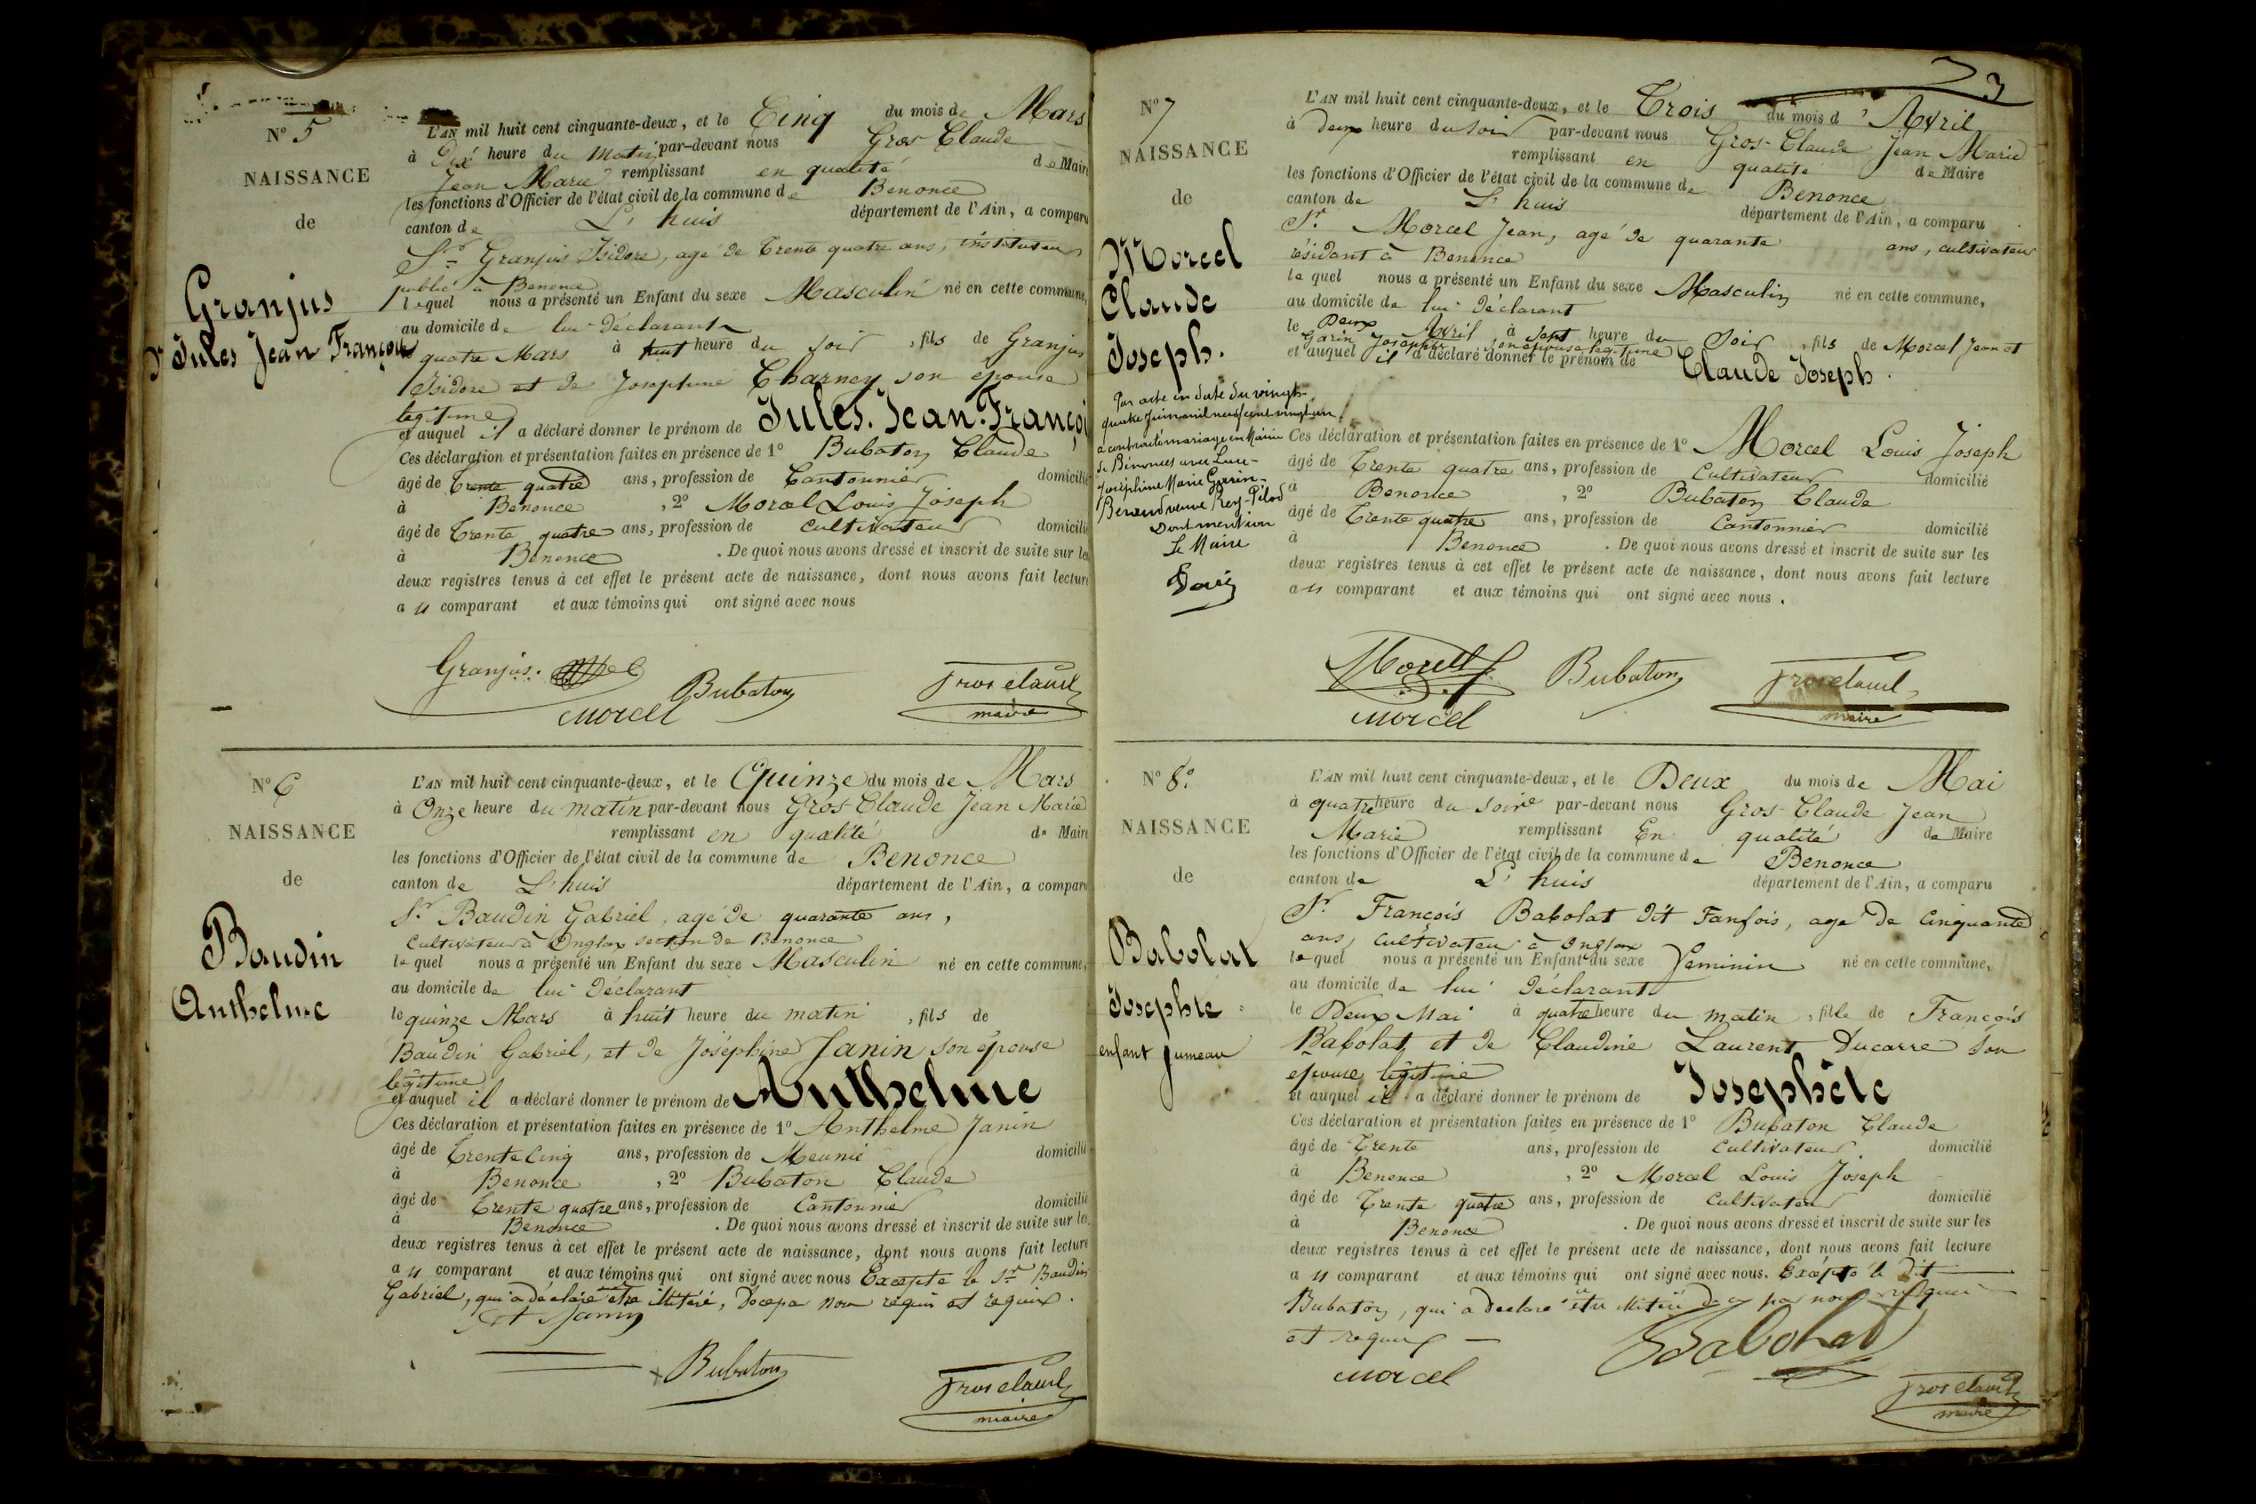 N° 5
NAISSANCE
de
Granjus
Jules Jean François
L'AN mil huit cent cinquante-deux, et le Cinq du mois de Mars
à Dix heure du matin par-devant nous Gros Claude
Jean Marie remplissant en qualité de Maire
les fonctions d'Officier de l'état civil de la commune de Benonce
canton de L'huis département de l'Ain, a comparu
Sr Granjus Isidore, agé de Trente quatre ans, instituteur
public à Benonce
lequel nous a présenté un Enfant du sexe Masculin né en cette commune,
au domicile de lui déclarant
quatre Mars à heure du soir, fils de Granjus
Isidore et de Josephine Charney son épouse
legitime
et auquel il a déclaré donner le prénom de Jules. Jean. Françoi
Ces déclaration et présentation faites en présence de 1° Bubaton Claude
âgé de Trente quatre ans, profession de Cantonnier domicilié
à Benonce, 2° Morcel Louis Joseph
âgé de Trente quatre ans, profession de cultivateur domicilié
à Benonce. De quoi nous avons dressé et inscrit de suite sur les
deux registres tenus à cet effet le présent acte de naissance, dont nous avons fait lecture
au comparant et aux témoins qui ont signé avec nous
Granjus.
Morcel Bubaton Grosclaude
maire
N° 6
NAISSANCE
de
Baudin
Anthelme
L'AN mil huit cent cinquante-deux, et le Quinze du mois de Mars
à Onze heure du matin par-devant nous Gros-Claude Jean Marie
remplissant en qualité de Maire
les fonctions d'Officier de l'état civil de la commune de Benonce
canton de L'huis département de l'Ain, a comparu
Sr Baudin Gabriel, agé de quarante ans,
Cultivateur à Onglax section de Benonce
lequel nous a présenté un Enfant du sexe Masculin né en cette commune,
au domicile de lui déclarant
le quinze Mars à huit heure du matin, fils de
Baudin Gabriel, et de Joséphine Janin son épouse
légitime
et auquel il a déclaré donner le prénom de Anthelme
Ces déclaration et présentation faites en présence de 1° Anthelme Janin
âgé de Trente Cinq ans, profession de Meunié domicilié
à Benonce, 2° Bubaton Claude
âgé de Trente quatre ans, profession de Cantonnier domicilié
à Benonce. De quoi nous avons dressé et inscrit de suite sur les
deux registres tenus à cet effet le présent acte de naissance, dont nous avons fait lecture
au comparant et aux témoins qui ont signé avec nous Excepte le Sr Baudin
Gabriel, qui a déclaré être illitéré, De ce par nous requis
Janin
Bubaton Grosclaude
maire
23
N° 7
NAISSANCE
de
Morcel
Claude
Joseph.
Par acte en date du vingt-
quatre Juin mil neuf cent vingt un
a contracté mariage en Mairie
de Bénonces avec
Joséphine Marie
veuve
Dont mention
Le Maire
L'AN mil huit cent cinquante-deux, et le Trois du mois d'Avril
à Deux heure du soir par-devant nous Gros-Claude Jean Marie
remplissant en qualité de Maire
les fonctions d'Officier de l'état civil de la commune de Benonce
canton de L'huis département de l'Ain, a comparu
Sr. Morcel Jean, agé de quarante ans, cultivateur
résidant à Benonce
lequel nous a présenté un Enfant du sexe Masculin né en cette commune,
au domicile de lui déclarant
le Deux Avril à sept heure du Soir, fils de Morcel Jean et
Garin Josephte, son épouse legitime
et auquel il a déclaré donner le prénom de Claude Joseph.
Ces déclaration et présentation faites en présence de 1° Morcel Louis Joseph
âgé de Trente quatre ans, profession de Cultivateur domicilié
à Benonce, 2° Bubaton Claude
âgé de Trente quatre ans, profession de Cantonnier domicilié
à Benonce. De quoi nous avons dressé et inscrit de suite sur les
deux registres tenus à cet effet le présent acte de naissance, dont nous avons fait lecture
au comparant et aux témoins qui ont signé avec nous.
Morcel Bubaton Grosclaude
Morcel maire
N° 8.
NAISSANCE
de
Babolat
Josephte
enfant Jumeau
L'AN mil huit cent cinquante-deux, et le Deux du mois de Mai
à quatre heure du soire par-devant nous Gros-Claude Jean
Marie remplissant En qualité de Maire
les fonctions d'Officier de l'état civil de la commune de Benonce
canton de L'huis département de l'Ain, a comparu
Sr. François Babolat dit Fanfois, age de Cinquante
ans, cultivateur à Onglax
lequel nous a présenté un Enfant du sexe Feminin né en cette commune,
au domicile de lui déclarant
le Deux Mai à quatre heure du matin, fille de François
Babolat et de Claudine Laurent Ducarre son
epouse légitime
et auquel il a déclaré donner le prénom de Josephète
Ces déclaration et présentation faites en présence de 1° Bubaton Claude
âgé de Trente ans, profession de Cultivateur domicilié
à Benonce, 2° Morcel Louis Joseph
âgé de Trente quatre ans, profession de Cultivateur domicilié
à Benonce. De quoi nous avons dressé et inscrit de suite sur les
deux registres tenus à cet effet le présent acte de naissance, dont nous avons fait lecture
au comparant et aux témoins qui ont signé avec nous. Excepte le dit
Bubaton, qui a declare être illitéré de ce par nous requis
Morcel Babolat
Grosclaude
maire